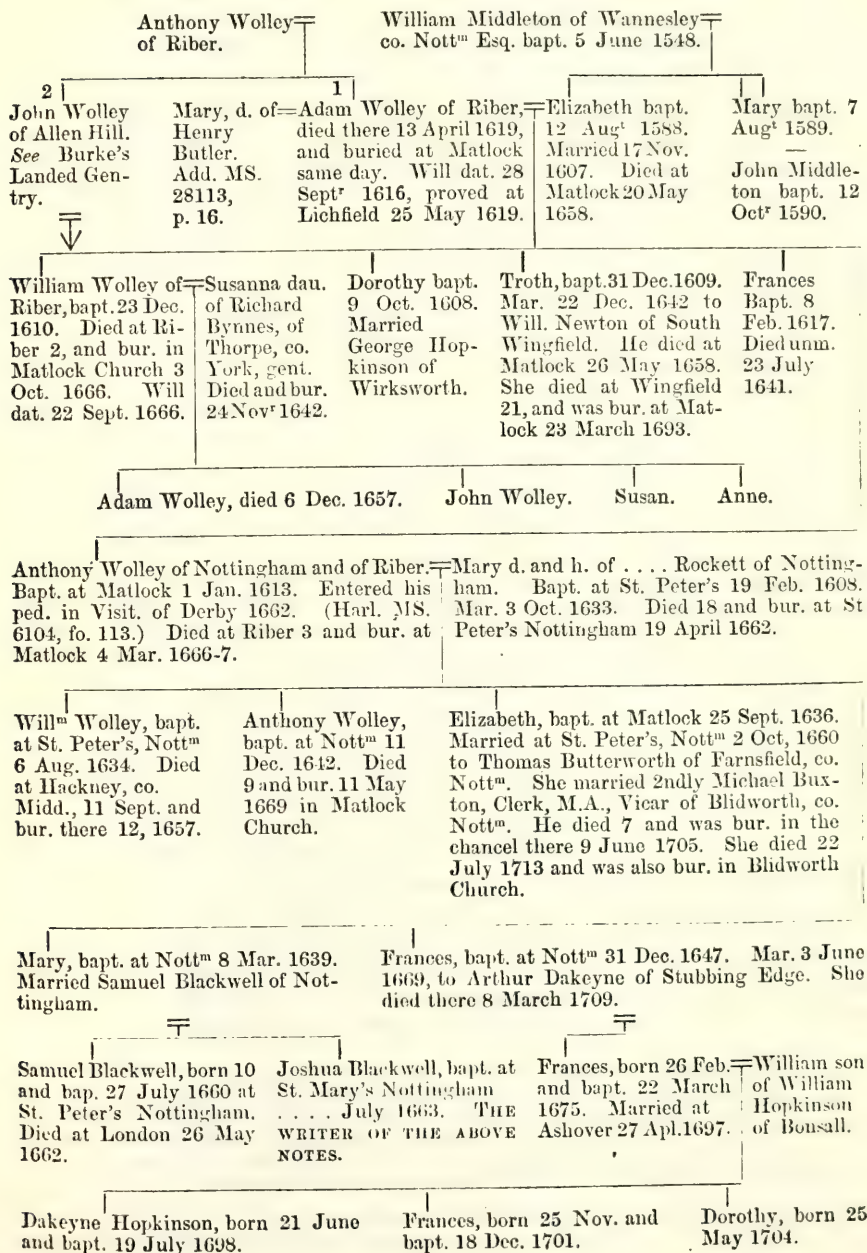 Anthony Wolley
of Riber.
William Middleton of Wannesley
co. Nottᵐ Esq. bapt. 5 June 1548.
2
John Wolley
of Allen Hill.
See Burke's
Landed Gen-
try.
Mary, d. of
Henry
Butler.
Add. MS.
28113,
p. 16.
1
Adam Wolley of Riber,
died there 13 April 1619,
and buried at Matlock
same day. Will dat. 28
Septʳ 1616, proved at
Lichfield 25 May 1619.
Elizabeth bapt.
12 Augᵗ 1588.
Married 17 Nov.
1607. Died at
Matlock 20 May
1658.
Mary bapt. 7
Augᵗ 1589.
—
John Middle-
ton bapt. 12
Octʳ 1590.
William Wolley of
Riber, bapt. 23 Dec.
1610. Died at Ri-
ber 2, and bur. in
Matlock Church 3
Oct. 1666. Will
dat. 22 Sept. 1666.
Susanna dau.
of Richard
Bynnes, of
Thorpe, co.
York, gent.
Died and bur.
24 Novʳ 1642.
Dorothy bapt.
9 Oct. 1608.
Married
George Hop-
kinson of
Wirksworth.
Troth, bapt. 31 Dec. 1609.
Mar. 22 Dec. 1642 to
Will. Newton of South
Wingfield. He died at
Matlock 26 May 1658.
She died at Wingfield
21, and was bur. at Mat-
lock 23 March 1693.
Frances
Bapt. 8
Feb. 1617.
Died unm.
23 July
1641.
Adam Wolley, died 6 Dec. 1657.
John Wolley.
Susan.
Anne.
Anthony Wolley of Nottingham and of Riber.
Bapt. at Matlock 1 Jan. 1613. Entered his
ped. in Visit. of Derby 1662. (Harl. MS.
6104, fo. 113.) Died at Riber 3 and bur. at
Matlock 4 Mar. 1666-7.
Mary d. and h. of . . . . Rockett of Notting-
ham. Bapt. at St. Peter's 19 Feb. 1608.
Mar. 3 Oct. 1633. Died 18 and bur. at St
Peter's Nottingham 19 April 1662.
Willᵐ Wolley, bapt.
at St. Peter's, Nottᵐ
6 Aug. 1634. Died
at Hackney, co.
Midd., 11 Sept. and
bur. there 12, 1657.
Anthony Wolley,
bapt. at Nottᵐ 11
Dec. 1642. Died
9 and bur. 11 May
1669 in Matlock
Church.
Elizabeth, bapt. at Matlock 25 Sept. 1636.
Married at St. Peter's, Nottᵐ 2 Oct, 1660
to Thomas Butterworth of Farnsfield, co.
Nottᵐ. She married 2ndly Michael Bux-
ton, Clerk, M.A., Vicar of Blidworth, co.
Nottᵐ. He died 7 and was bur. in the
chancel there 9 June 1705. She died 22
July 1713 and was also bur. in Blidworth
Church.
Mary, bapt. at Nottᵐ 8 Mar. 1639.
Married Samuel Blackwell of Not-
tingham.
Frances, bapt. at Nottᵐ 31 Dec. 1647. Mar. 3 June
1669, to Arthur Dakeyne of Stubbing Edge. She
died there 8 March 1709.
Samuel Blackwell, born 10
and bap. 27 July 1660 at
St. Peter's Nottingham.
Died at London 26 May
1662.
Joshua Blackwell, bapt. at
St. Mary's Nottingham
. . . . July 1663. THE
WRITER OF THE ABOVE
NOTES.
Frances, born 26 Feb.
and bapt. 22 March
1675. Married at
Ashover 27 Apl. 1697.
William son
of William
Hopkinson
of Bonsall.
Dakeyne Hopkinson, born 21 June
and bapt. 19 July 1698.
Frances, born 25 Nov. and
bapt. 18 Dec. 1701.
Dorothy, born 25
May 1704.